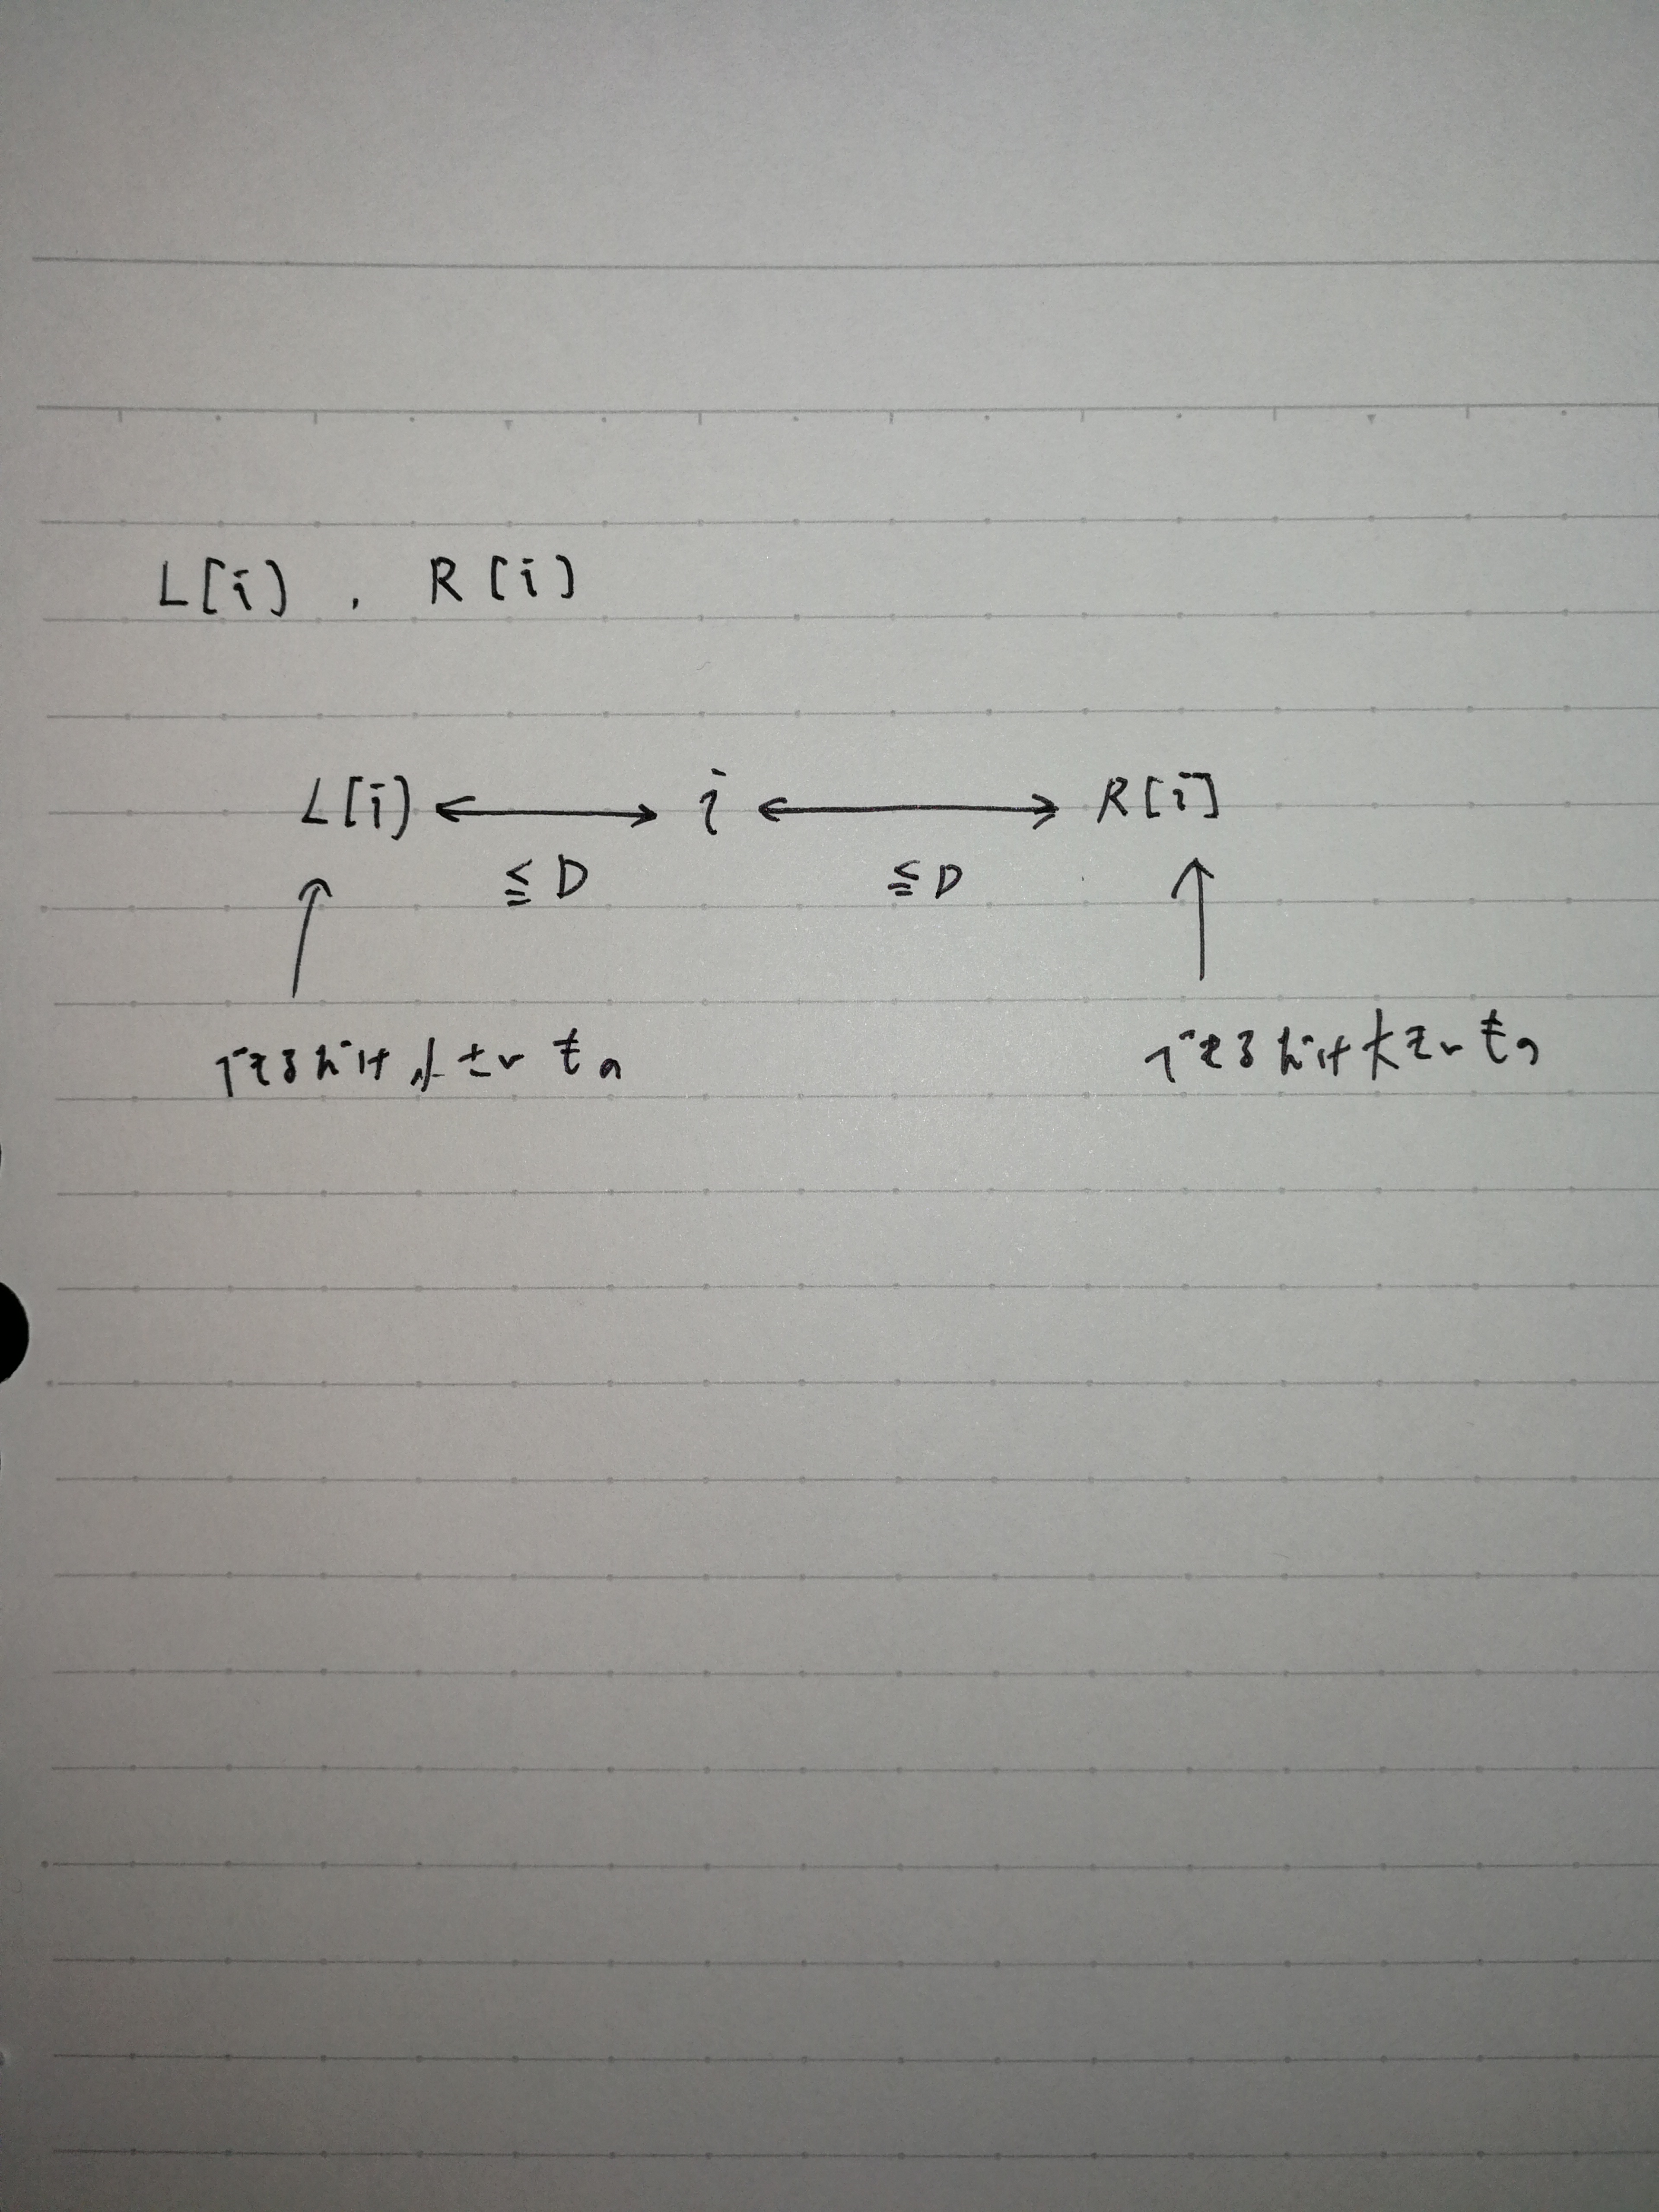 L[i], R[i]
L[i] ←→ i ←→ R[i]
≦D ≦D
↑ ↑
できるだけ小さいもの できるだけ大きいもの